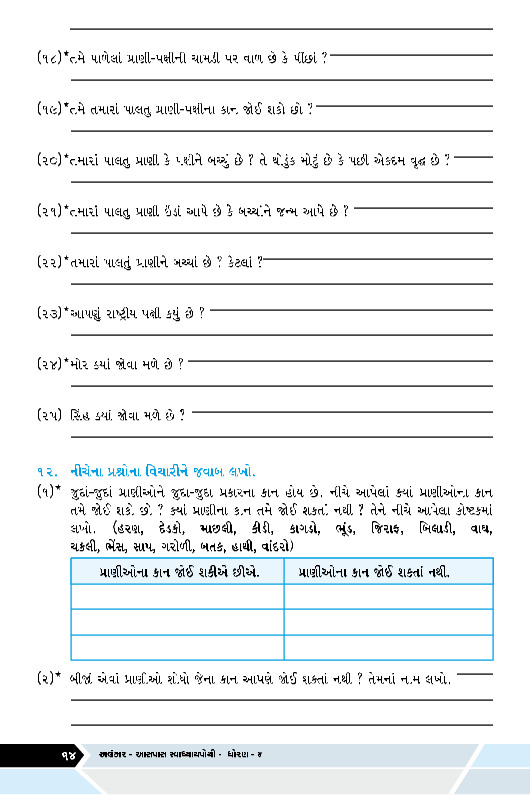 (૧૮)*તમે પાળેલાં પ્રાણી-પક્ષીની ચામડી પર વાળ છે કે પીંછાં ?
(૧૯)*તમે તમારાં પાલતુ પ્રાણી-પક્ષીના કાન જોઈ શકો છો ?
(૨૦)*તમારાં પાલતુ પ્રાણી કે પક્ષીને બચ્ચું છે ? તે થોડુંક મોટું છે કે પછી એકદમ વૃદ્ધ છે ?
(૨૧)*તમારાં પાલતુ પ્રાણી ઈંડાં આપે છે કે બચ્ચાંને જન્મ આપે છે ?
(૨૨)*તમારાં પાલતું પ્રાણીને બચ્ચાં છે ? કેટલાં ?
(૨૩)*આપણું રાષ્ટ્રીય પક્ષી કયું છે ?
(૨૪)*મોર કયાં જોવા મળે છે ?
(૨૫) સિંહ કયાં જોવા મળે છે ?
૧૨. નીચેના પ્રશ્નોના વિચારીને જવાબ લખો.
(૧)* જુદાં-જુદાં પ્રાણીઓને જુદા-જુદા પ્રકારના કાન હોય છે. નીચે આપેલાં ક્યાં પ્રાણીઓના કાન
તમે જોઈ શકો છો ? ક્યાં પ્રાણીના કાન તમે જોઈ શકતાં નથી ? તેને નીચે આપેલા કોષ્ટકમાં
લખો. (હરણ, દેડકો, માછલી, કીડી, કાગડો, ભૂંડ, જિરાફ, બિલાડી, વાઘ,
ચકલી, ભેંસ, સાપ, ગરોળી, બતક, હાથી, વાંદરો)
પ્રાણીઓના કાન જોઈ શકીએ છીએ. પ્રાણીઓના કાન જોઈ શકતાં નથી.
(૨)* બીજાં એવાં પ્રાણીઓ શોધો જેના કાન આપણે જોઈ શકતાં નથી ? તેમનાં નામ લખો.
૧૪ અલંકાર - આસપાસ સ્વાધ્યાયપોથી - ધોરણ - ૪